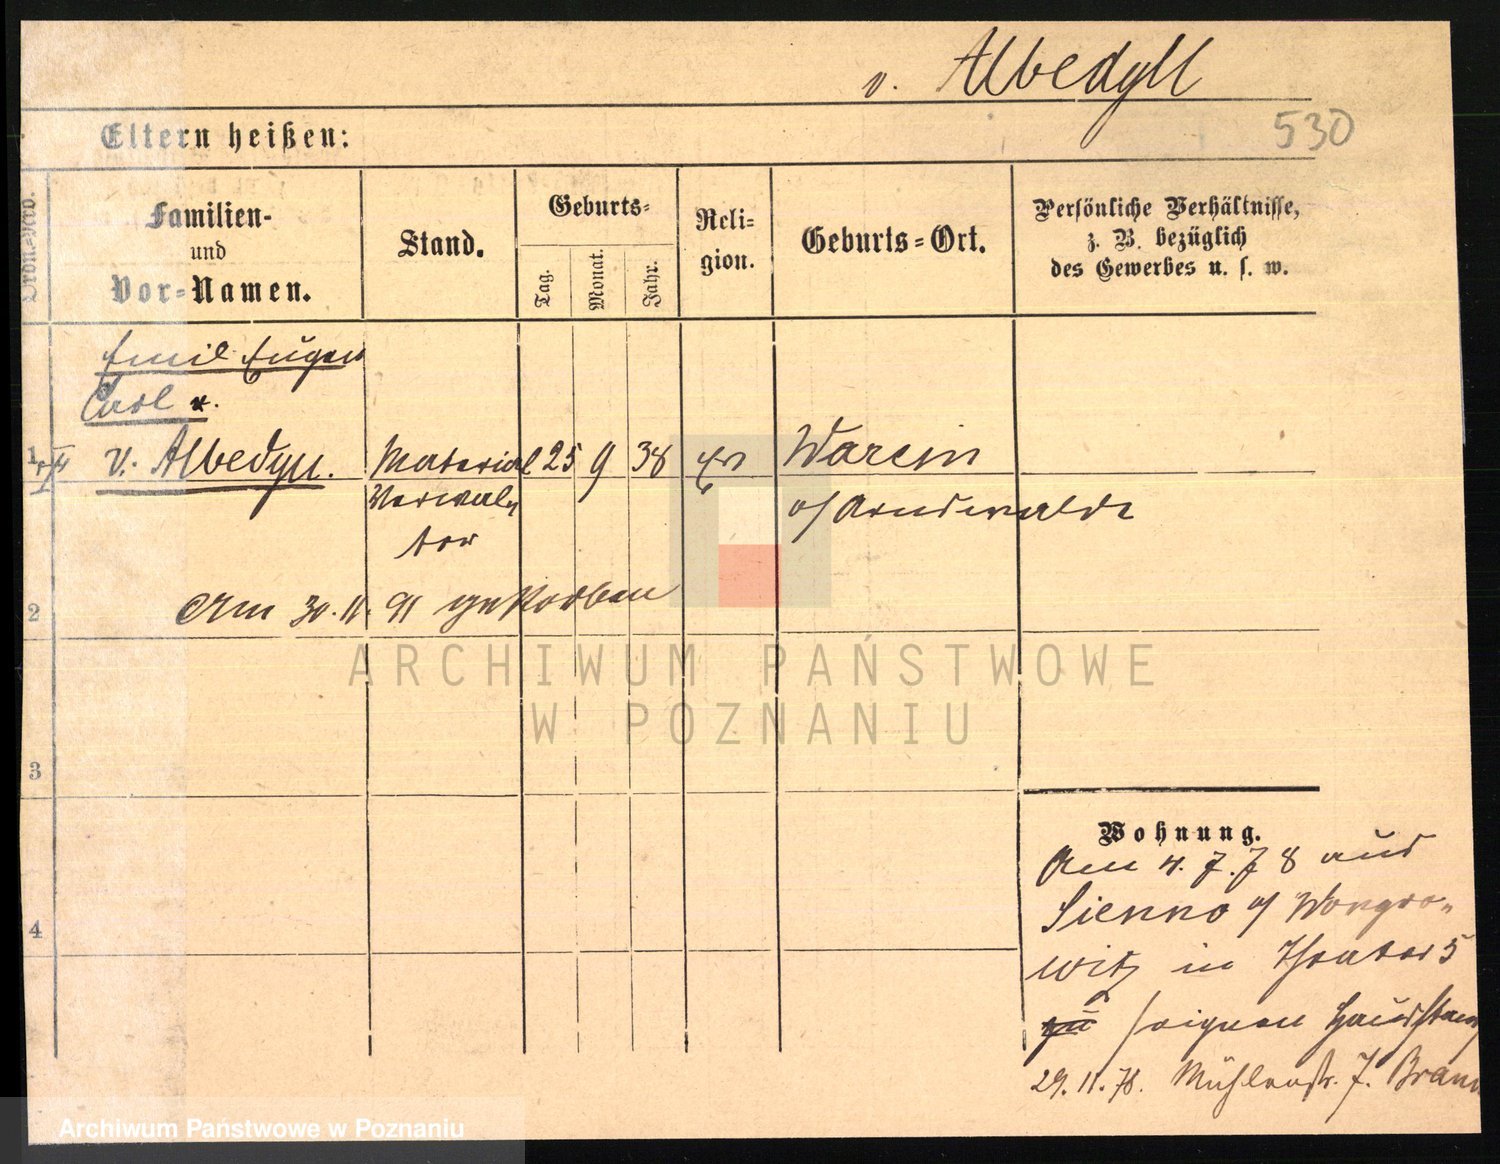 v. Albedyll
530
Eltern heißen:
Ordn.=Nro.
Familien-
und
Vor=Namen.
Stand.
Geburts=
Tag.
Monat.
Jahr.
Reli=
gion.
Geburts=Ort.
Persönliche Verhältnisse,
z. B. bezüglich
des Gewerbes u. s. w.
Emil Eugen
Carl *.
1 v. Albedyll. Material 25 9 38 Ev Warsin
Verwal=
tor
o/ Arnswalde
2 Am 30.11.91 gestorben
ARCHIWUM PAŃSTWOWE
W POZNANIU
3
4
Wohnung.
Am 4.7.78 aus
Sienno o/ Wongro=
witz in Theater 5
zu / eignen Hausstand
29.11.78. Mühlenstr. 7. Brann
Archiwum Państwowe w Poznaniu